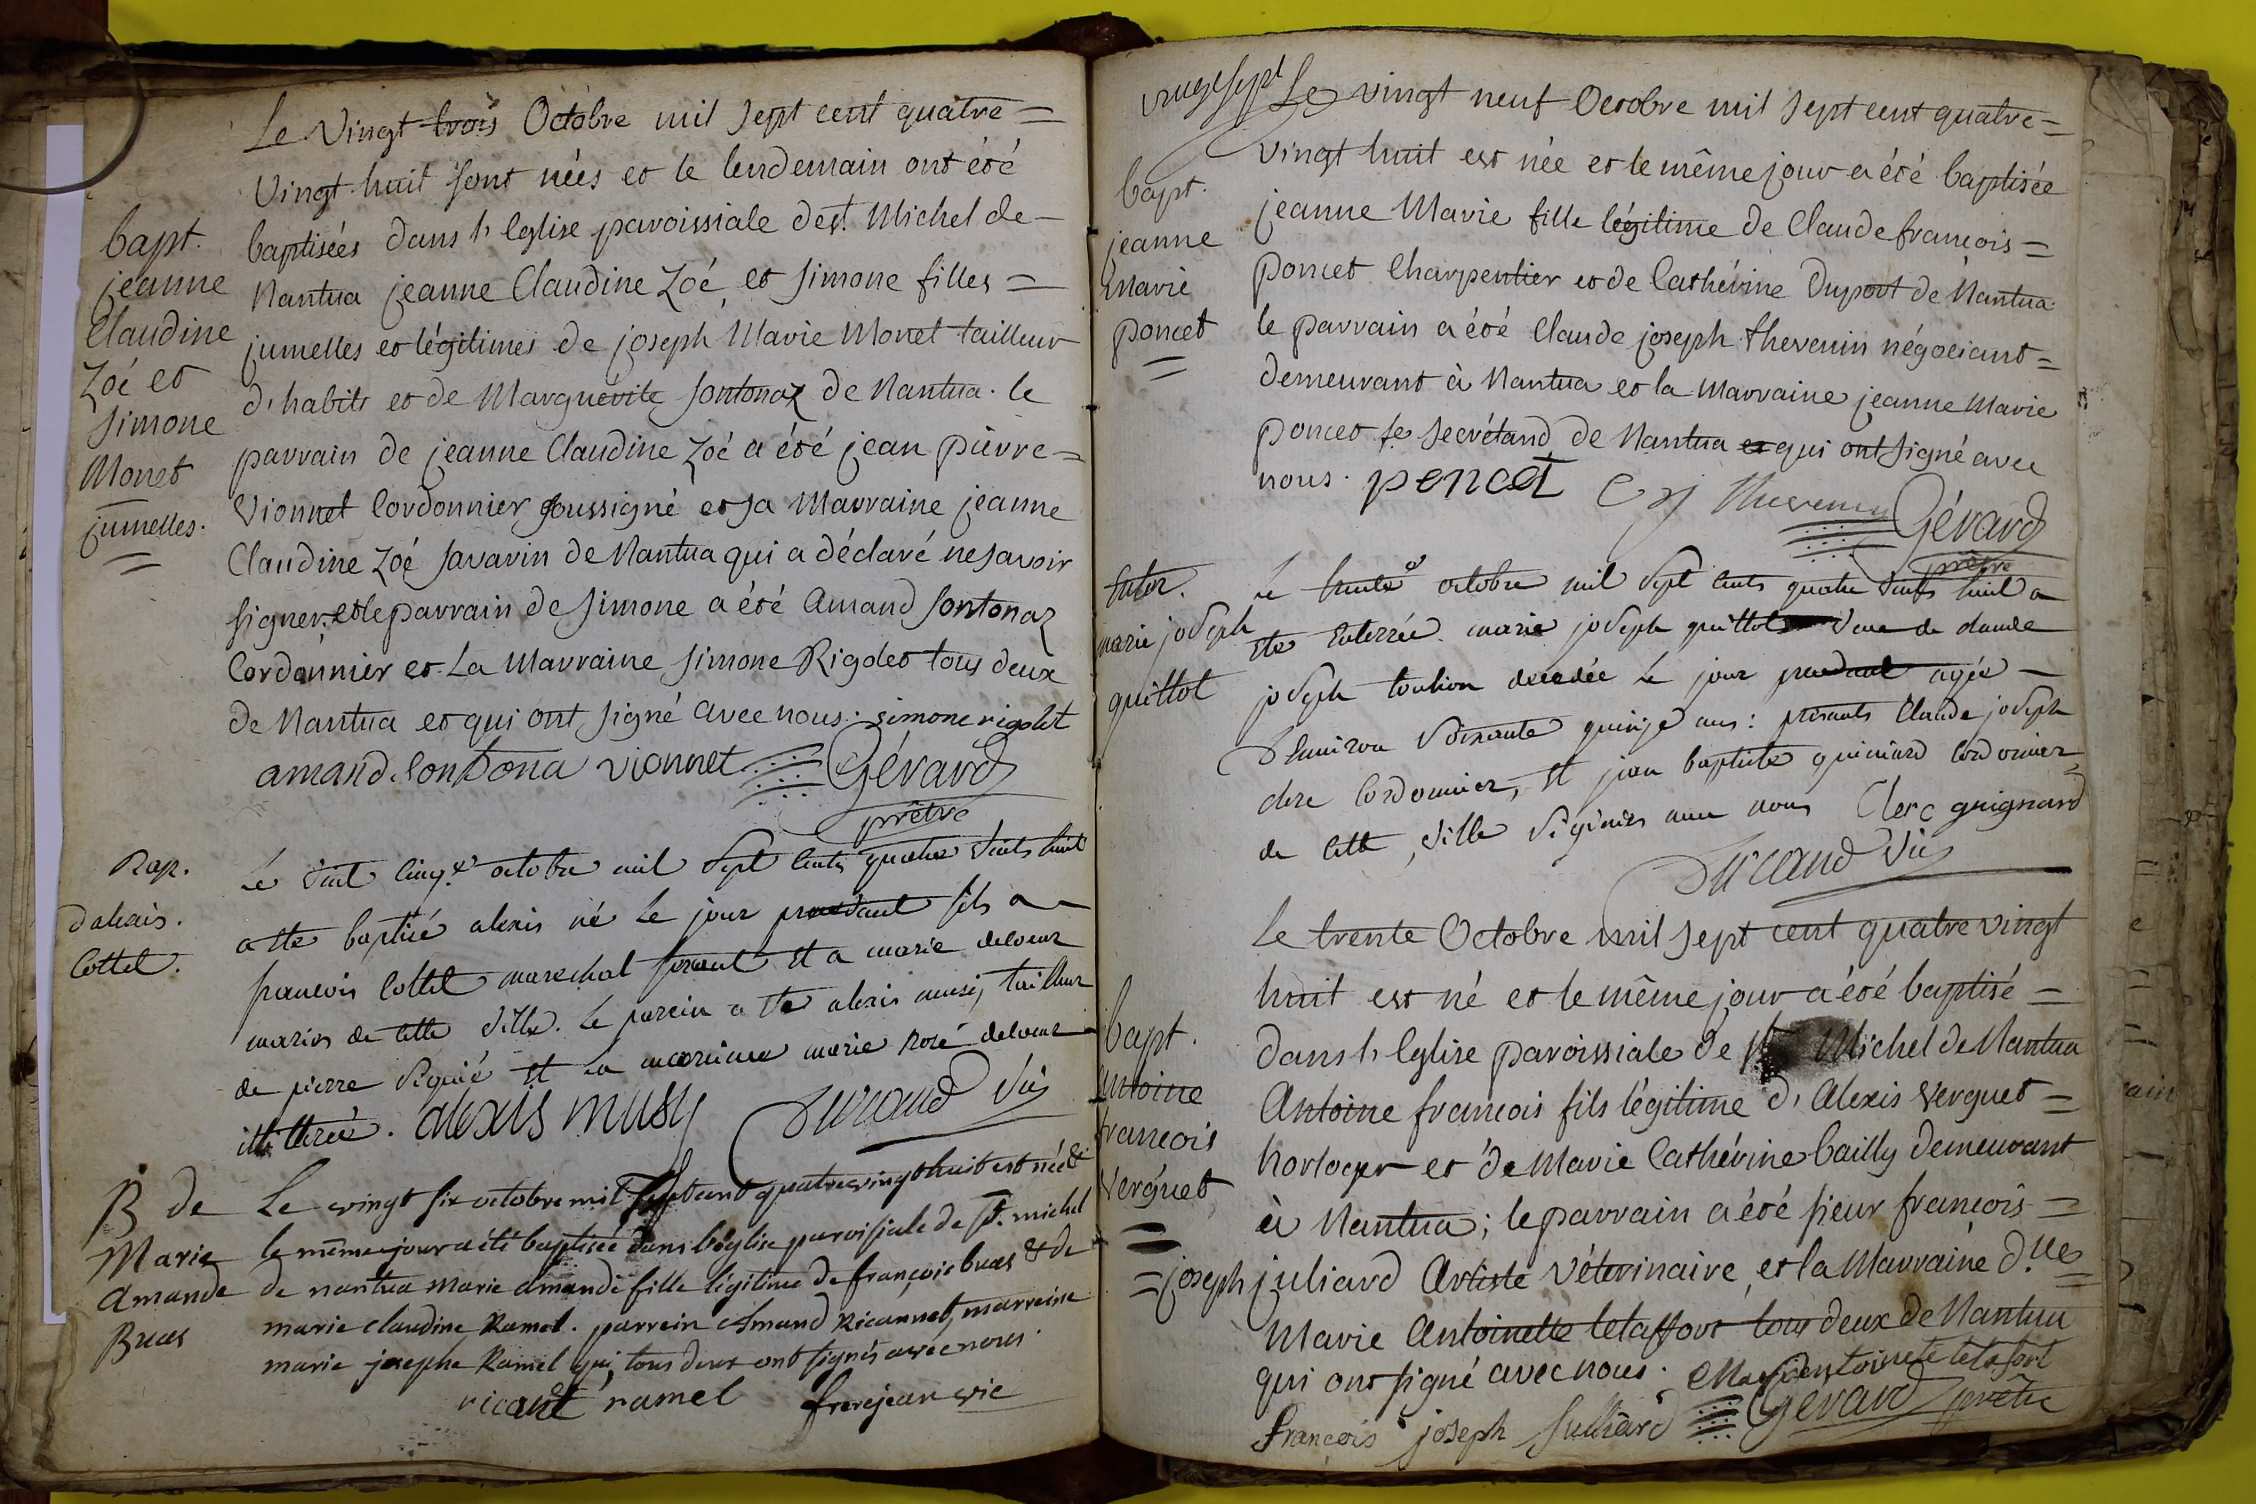 Le Vingt trois Octobre mil sept cent quatre =
Vingt-huit sont nées et le lendemain ont été
bapt.
baptisées dans l'Eglise paroissiale de st. Michel de -
jeanne
Nantua jeanne Claudine Zoé, et Simone filles =
Claudine
jumelles et légitimes de joseph Marie Monet tailleur
Zoé et
d'habits et de Marguerite Sontonaz de Nantua. le
Simone
parrain de jeanne Claudine Zoé a été jean pierre =
Monet
Vionnet Cordonnier soussigné et sa Marraine jeanne
jumelles.
Claudine Zoé Savarin de Nantua qui a déclaré ne savoir
signer, et le parrain de Simone a été Amand Sontonaz
Cordonnier et La Marraine Simone Rigolet tous deux
de Nantua et qui ont signé avec nous. simone rigolet
amand. sontona vionnet Gérard
prêtre
Bap.
Le vint cinq.e octobre mil sept cents quatre vints huit
d'alexis.
a ete baptisé alexis né le jour precedant fils a
Cottet.
francois Cottet marechal ferrant et a marie delœur
mariés de cette ville. Le parein a ete alexis musi, tailleur
de pierre signié et la mareine marie rosé delœur
illitérée. alexis musy Durand vic
B de
Le vingt six octobre mil sept cent quatre vingt huit est née &
Marie
le même jour a été baptisée dans l'église paroissiale de St. michel
Amande
de nantua Marie amande fille légitime de françois buas & de
Buas
marie claudine Ramel. parrein Amand Ricannet, marreine
marie josephe Ramel qui tous deux ont signés avec nous.
ricanet ramel frerejean vic
vingt sept
Le vingt neuf Octobre mil sept cent quatre =
vingt huit est née et le même jour a été baptisée
bapt.
jeanne Marie fille légitime de Claude francois =
jeanne
poncet Charpentier et de Cathérine Dupont de Nantua.
Marie
le parrain a été Claude joseph thevenin négociant =
poncet
demeurant à Nantua et la Marraine jeanne Marie
poncet fe Secrétand de Nantua et qui ont signé avec
nous. poncet C j thevenin Gérard
prêtre
Enter.
Le trente e octobre mil sept cents quatre vints huit a
marie joseph
ete enterrée marie joseph quittot veuve de claude
quittot
joseph toulion decedée le jour precedant agée
d'environ soixante quinze ans: présants Claude joseph
clerc Cordonnier, et jean baptiste guiniard cordonier
de cette ville signiés avec nous Clerc guignard
Durand vic
Le trente Octobre mil sept cent quatre vingt
huit est né et le même jour a été baptisé =
bapt.
dans l'Eglise paroissiale de st Michel de Nantua
Antoine
Antoine francois fils légitime d'Alexis Verguet =
francois
horloger et de Marie Cathérine bailly demeurant
Verguet
à Nantua; le parrain a été sieur françois =
= joseph juliard Artiste Véterinaire et la Marraine d.lle
Marie Antoinette letaffort tous deux de Nantua
qui ont signé avec nous. Marie Antoinete letafort
françois joseph Julliard Gérard prêtre